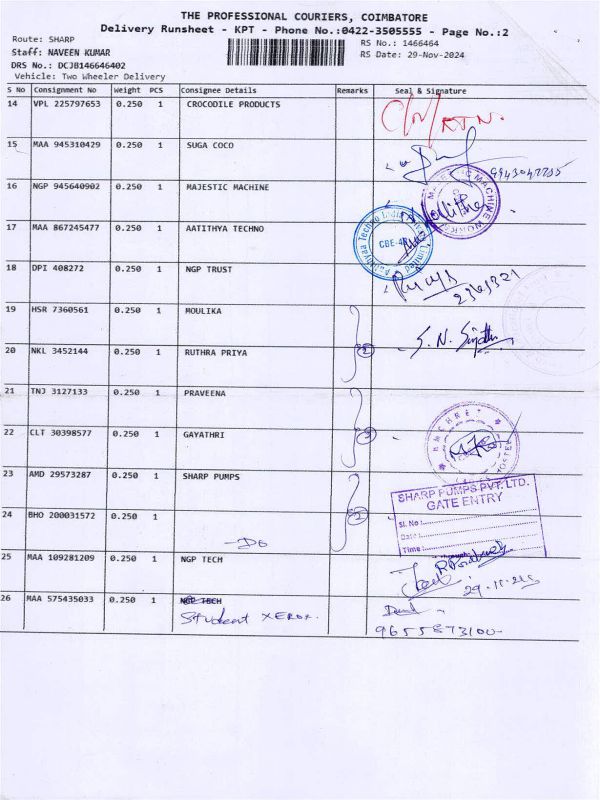 THE PROFESSIONAL COURIERS, COIMBATORE
Delivery Runsheet - KPT - Phone No.:0422-3505555 - Page No.:2
Route: SHARP RS No.: 1466464
Staff: NAVEEN KUMAR RS Date: 29-Nov-2024
DRS No.: DCJB146646402
Vehicle: Two Wheeler Delivery
S No Consignment No Weight PCS Consignee Details Remarks Seal & Signature
14 VPL 225797653 0.250 1 CROCODILE PRODUCTS
15 MAA 945310429 0.250 1 SUGA COCO
16 NGP 945640902 0.250 1 MAJESTIC MACHINE
17 MAA 867245477 0.250 1 AATITHYA TECHNO
CBE-4
18 DPI 408272 0.250 1 NGP TRUST
19 HSR 7360561 0.250 1 MOULIKA
2
20 NKL 3452144 0.250 1 RUTHRA PRIYA
21 TNJ 3127133 0.250 1 PRAVEENA
22 CLT 30398577 0.250 1 GAYATHRI
23 AMD 29573287 0.250 1 SHARP PUMPS
SHARP PUMPS PVT. LTD.
GATE ENTRY
Sl. No :
Date :
Time :
24 BHO 200031572 0.250 1
2
-Do
25 MAA 109281209 0.250 1 NGP TECH
26 MAA 575435033 0.250 1 NGP TECH
Student XEROX.
9655873100-